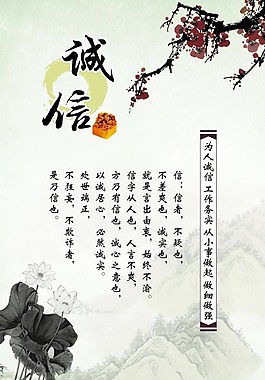 诚信
为人诚信 工作务实 从小事做起 做细做强
信：信者，不疑也，
不差爽也，诚实也，
就是言出由衷，始终不渝。
信字从人也，人言不爽，
方为有信也，诚心之意也，
以诚居心，必然诚实。
处世端正，
不狂妄，不欺诈者，
是乃信也。